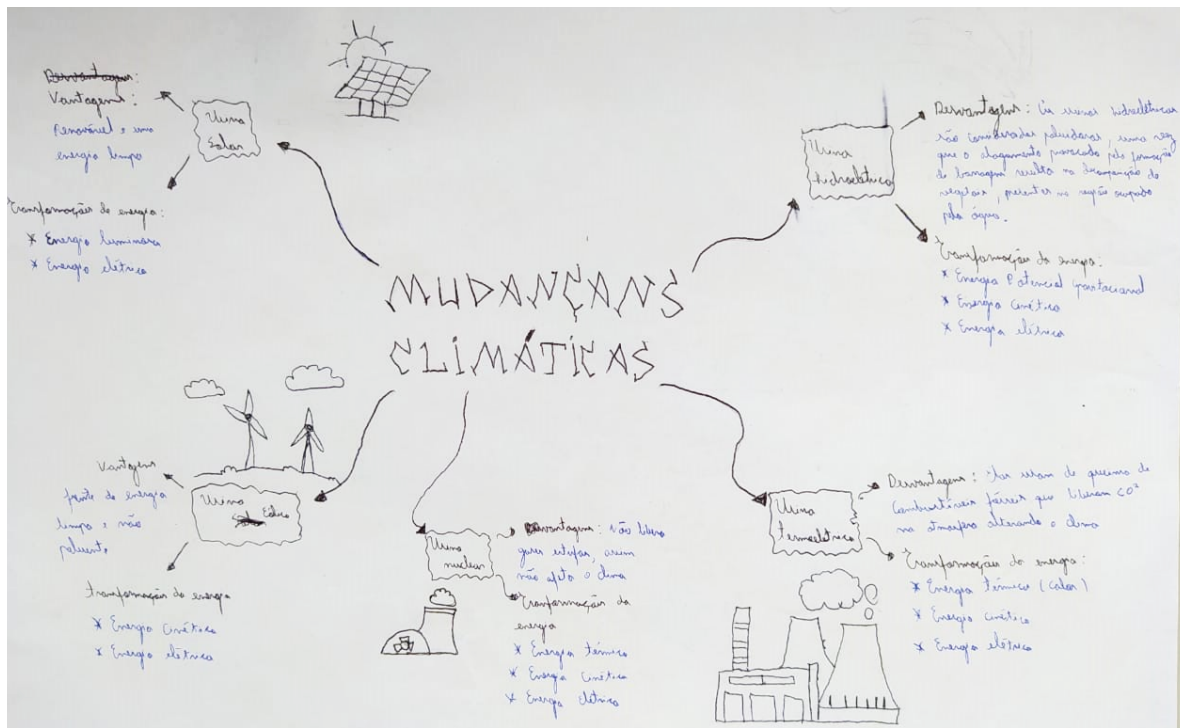 MUDANÇANS
CLIMÁTICAS
Desvantagens:
Vantagens:
Renovável e uma
energia limpa
Usina
Solar
Transformações de energia:
* Energia luminosa
* Energia elétrica
Usina
hidroelétrica
Desvantagens: As usinas hidroelétricas
são consideradas poluidoras, uma vez
que o alagamento provocado pela formação
de barragem resulta na decomposição de
vegetais, presentes na região ocupada
pela água.
Transformações da energia:
* Energia Potencial gravitacional
* Energia Cinética
* Energia elétrica
Vantagens
fonte de energia
limpa e não
poluente.
Usina
Eólica
transformações da energia
* Energia Cinética
* Energia elétrica
Usina
nuclear
vantagens: não libera
gases estufas, assim
não afeta o clima
Transformações da
energia
* Energia térmica
* Energia Cinética
* Energia elétrica
Usina
termoelétrica
Desvantagens: Elas usam de queima de
Combustíveis fósseis que liberam CO²
na atmosfera alterando o clima
Transformações da energia:
* Energia térmica (calor)
* Energia cinética
* Energia elétrica